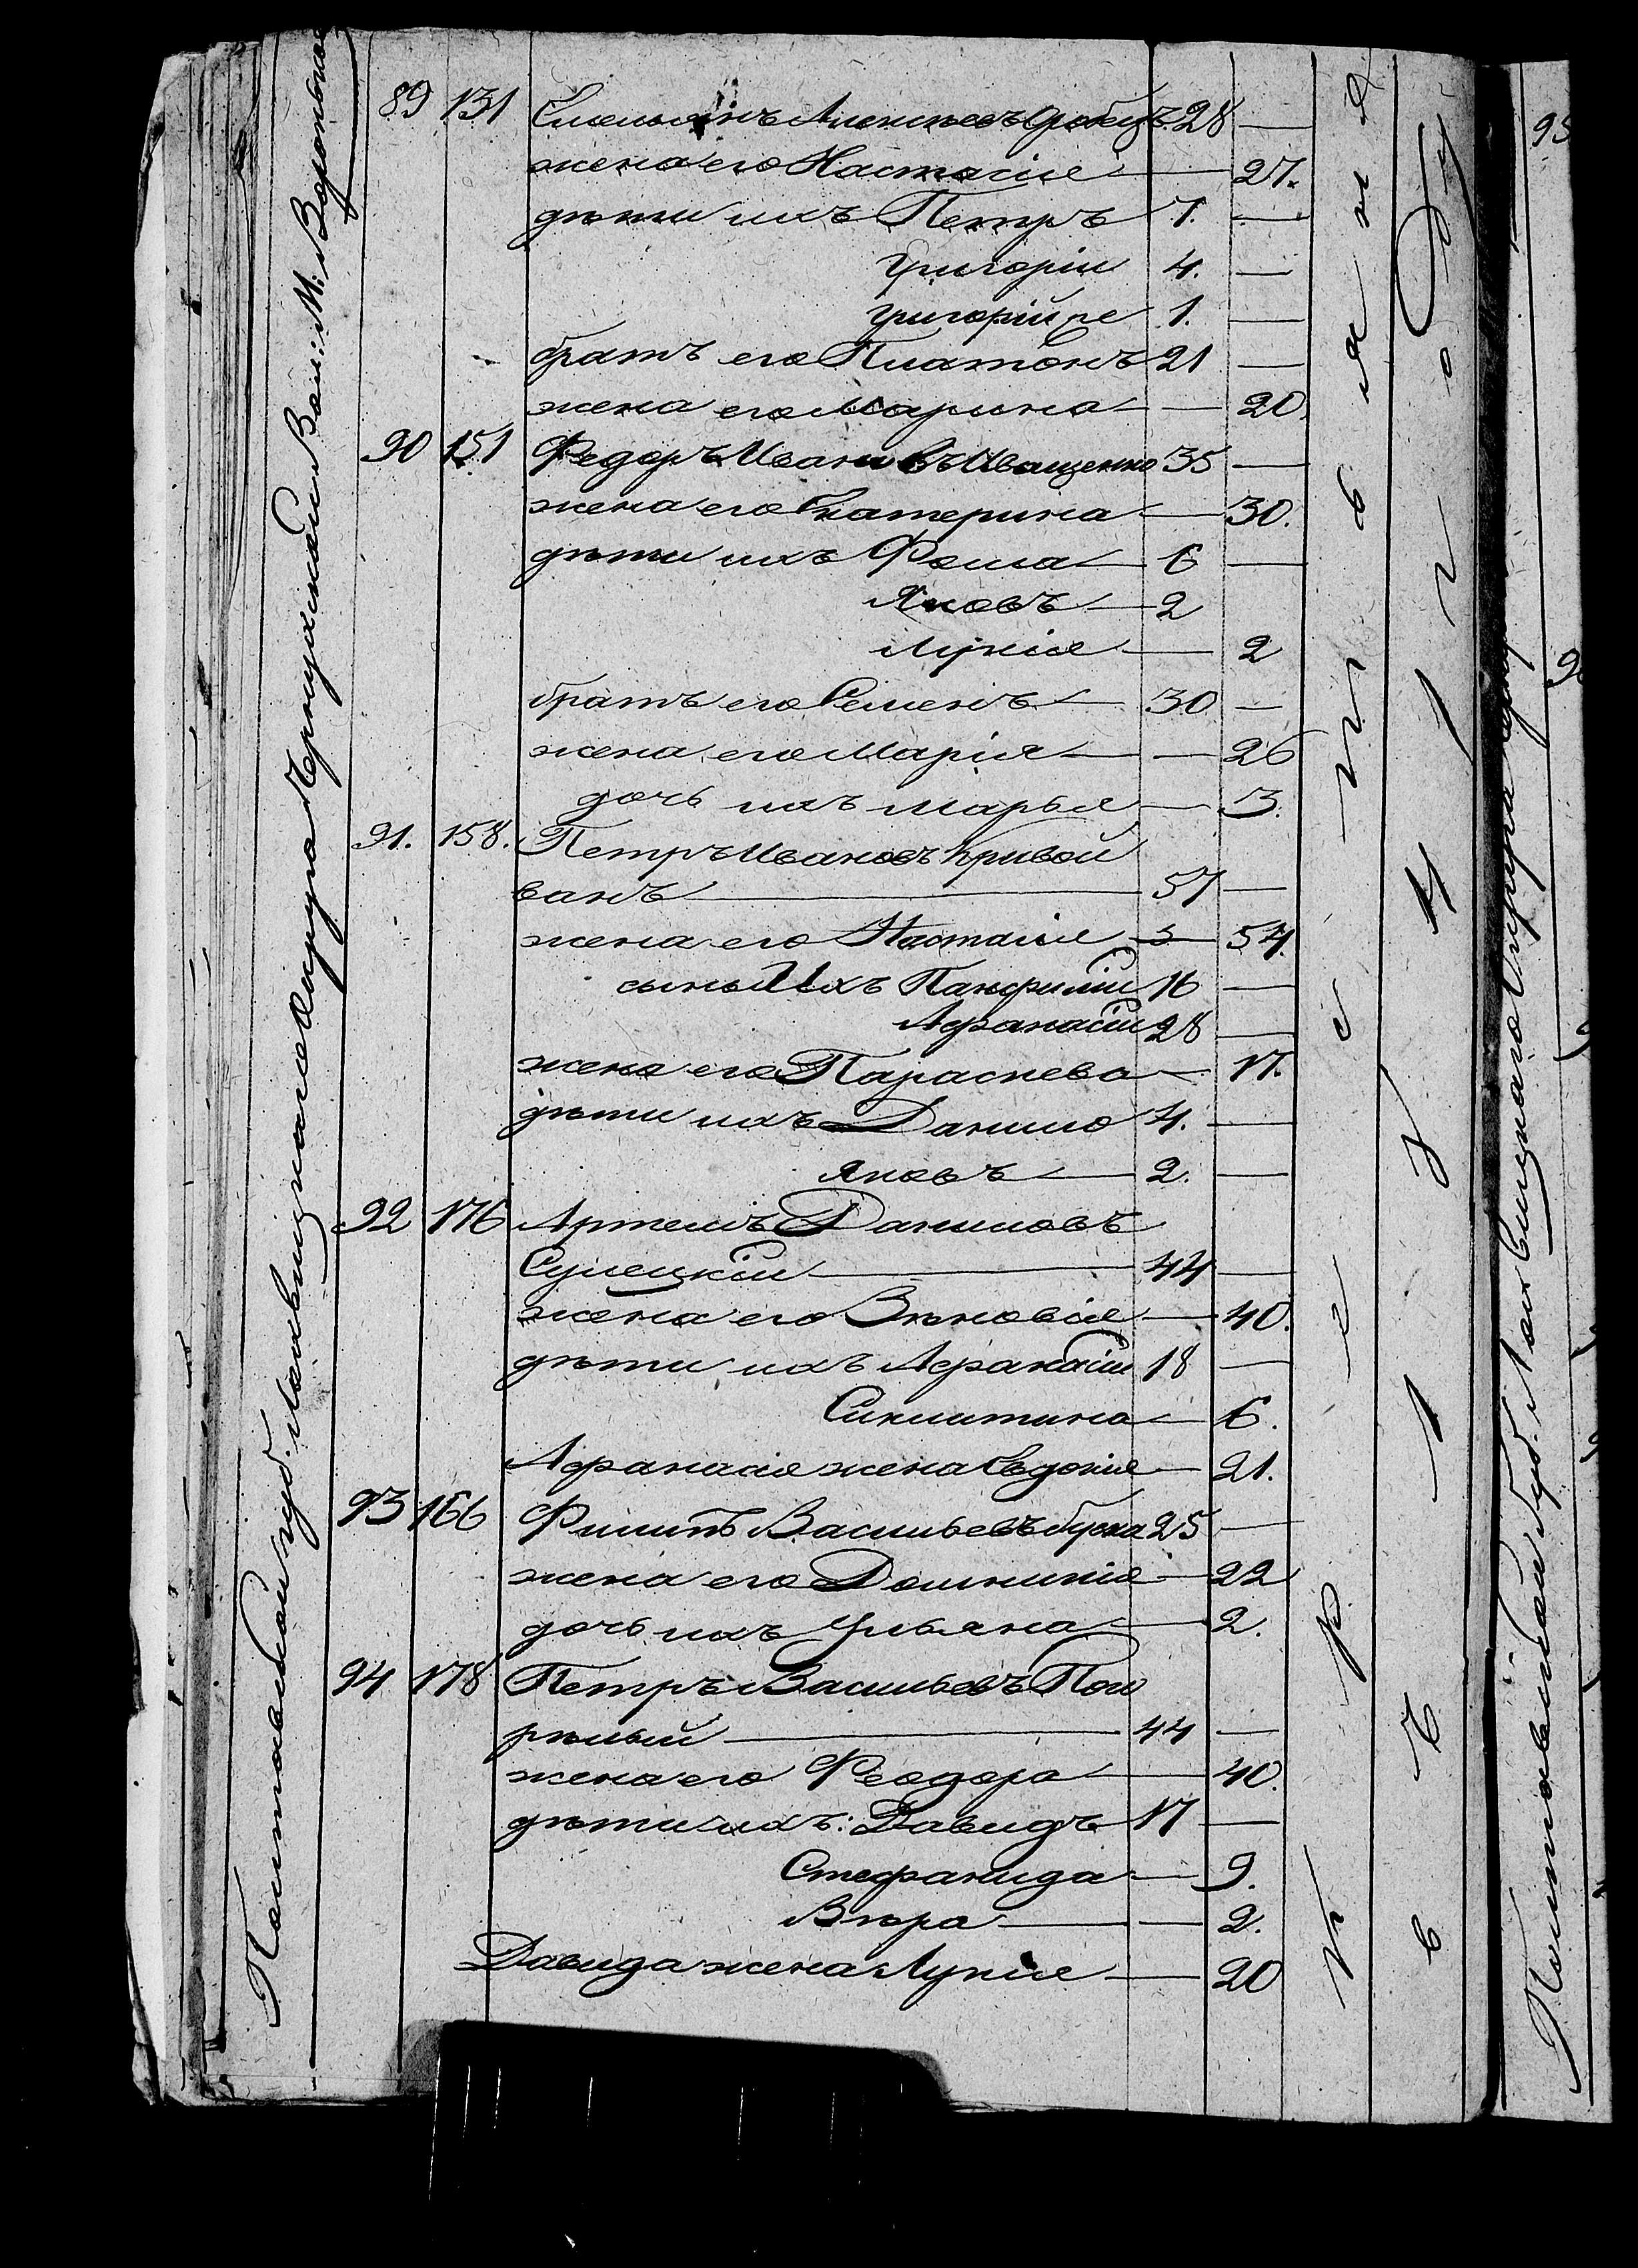 Полтавской губ: Лохвицкаго округа Чернухской Вол: М: Вороньковъ
89 131 Емельянъ Алексѣевъ 28 —
жена его Настасія — 27.
дѣти ихъ Петръ 7. —
Григоріи 4. —
Григорій же 1. —
братъ его Платонъ 21 —
жена его Марина — 20.
90 151 Федоръ Ивановъ Иващенко 35 —
жена его Екатерина — 30.
дѣти ихъ Фома 6 —
Яковъ — 2
Лукія — 2
братъ его Семенъ — 30 —
жена его Марія — 26
дочь ихъ Марья — 3.
91. 158. Петръ Ивановъ Кривой
ванъ — 57 —
жена его Настасія — 54.
сыны Ихъ Панфиліи 16 —
Афанасіи 28 —
жена его Параскева — 17.
дѣти ихъ Данило 4. —
Яковъ — 2. —
92 176 Артемъ Даниловъ
Сулецкіи — 44 —
жена его Зѣновія — 40.
дѣти ихъ Афанасіи 18 —
Сиклитина — 6.
Афанасія жена Евдокія — 21.
93 166 Филипъ Васильевъ 25 —
жена его Домникія — 22
дочь ихъ Ульяна — 2.
94 178 Петръ Васильевъ Пого
рѣлый — 44 —
жена его Феодора — 40.
дѣти ихъ: Давидъ 17 —
Стефанида — 9.
Вѣра — 2.
Давида жена Лукія — 20
в ъ 1 8 4 1 г о д у
95